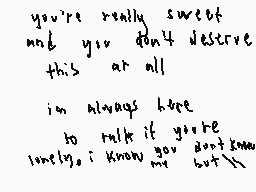 you're really sweet
and you don't deserve
this at all
im always here
to talk if you're
lonely, i know you don't know
me but \\